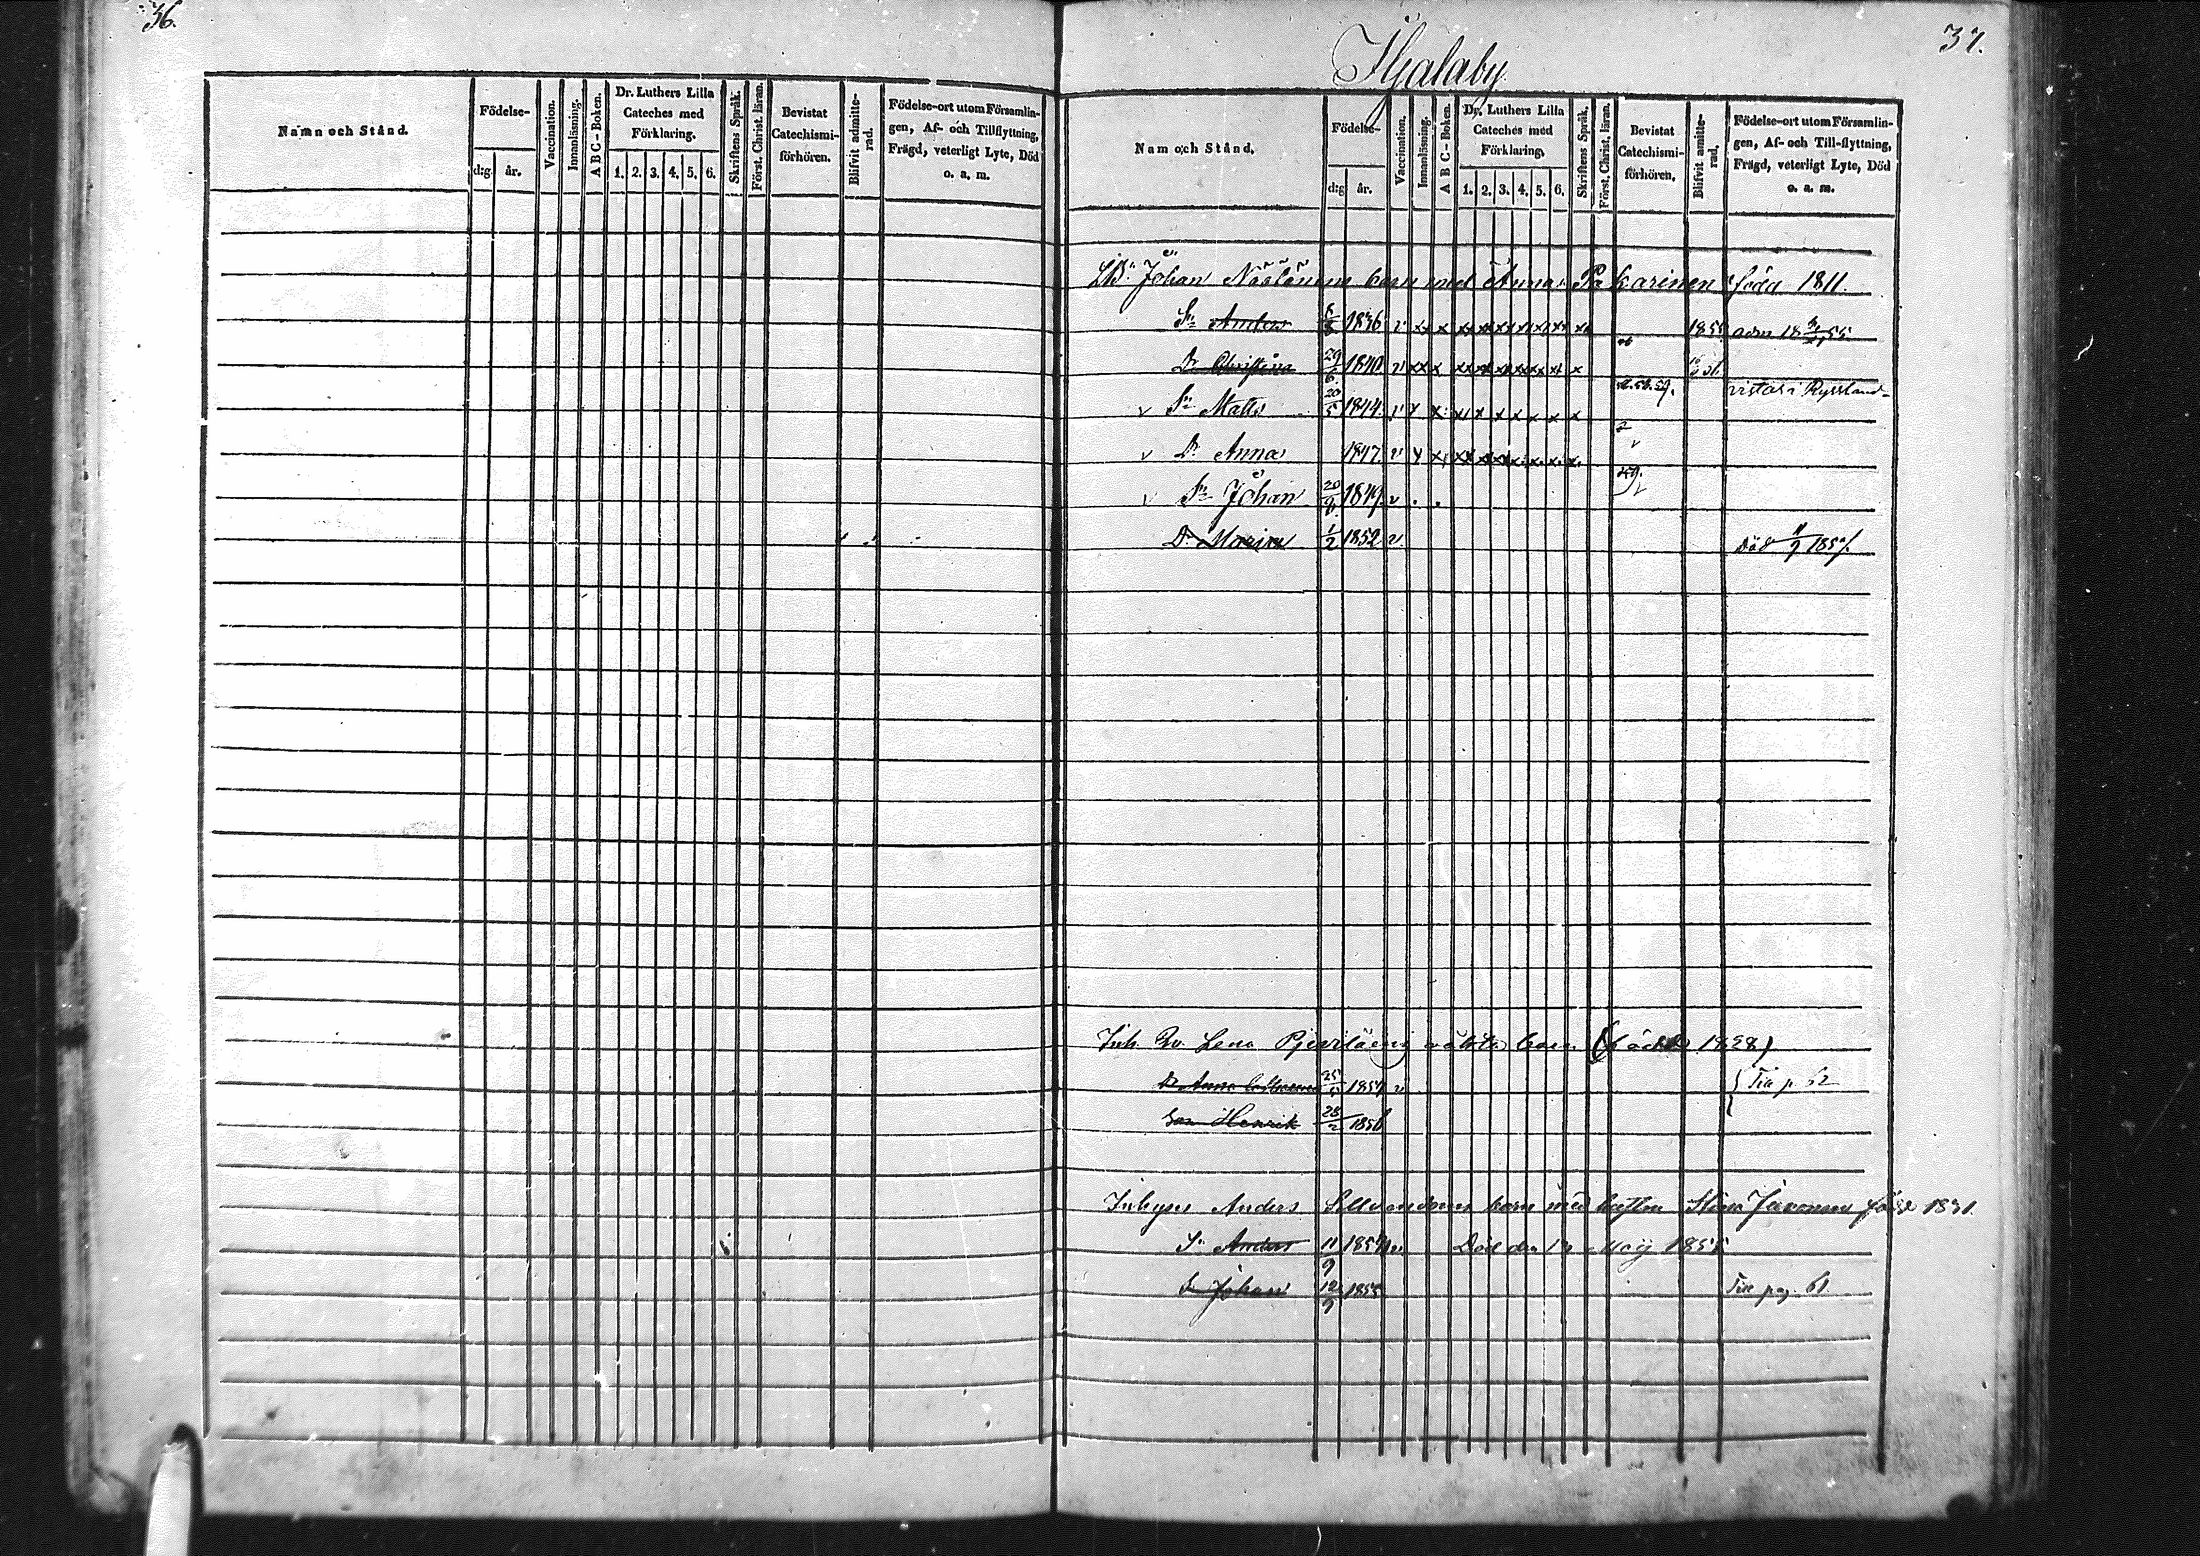 36.
Namn och Stånd.
Födelse-
d:g år.
Vaccination.
Innanläsning.
A B C - Boken.
Dr. Luthers Lilla
Cateches med
Förklaring.
1. 2. 3. 4. 5. 6.
Skriftens Språk.
Först. Christ. läran.
Bevistat
Catechismi-
förhören.
Blifvit admitte-
rad.
Födelse-ort utom Församlin-
gen, Af- och Tillflyttning,
Frägd, veterligt Lyte, Död
o. a. m.
37.
Namn och Stånd.
Födelse-
d:g år.
Vaccination.
Innanläsning.
A B C - Boken.
Dr. Luthers Lilla
Cateches med
Förklaring.
1. 2. 3. 4. 5. 6.
Skriftens Språk.
Först. Christ. läran.
Bevistat
Catechismi-
förhören.
Blifvit amitte-
rad.
Födelse-ort utom Församlin-
gen, Af- och Till-flyttning,
Frägd, veterligt Lyte, Död
o. a. m.
Johan barn med Anna föda 1811.
Sn Anders 1836 v x x x x x x x x x x
Dr Christina 29/6 1840 v x x x x x x x x x x
Sn Matts 20/5 1844 v x x x x x x x x x vistas i Ryssland
Dr Anna 1847 v x x x x x x x x x
Sn Johan 20/9 1849 v
Dr Maria 1/2 1852 v Död 11/9 1857.
Inh. Lena barn 1828)
Dr Anna 25 v p 62
Son Henrik 28/2 1856
Inhyses Anders barn med hustru Stina född 1831.
Sn Anders 11/9 Död den Maij 1855
Johan 12/9 1855 Till pag. 61